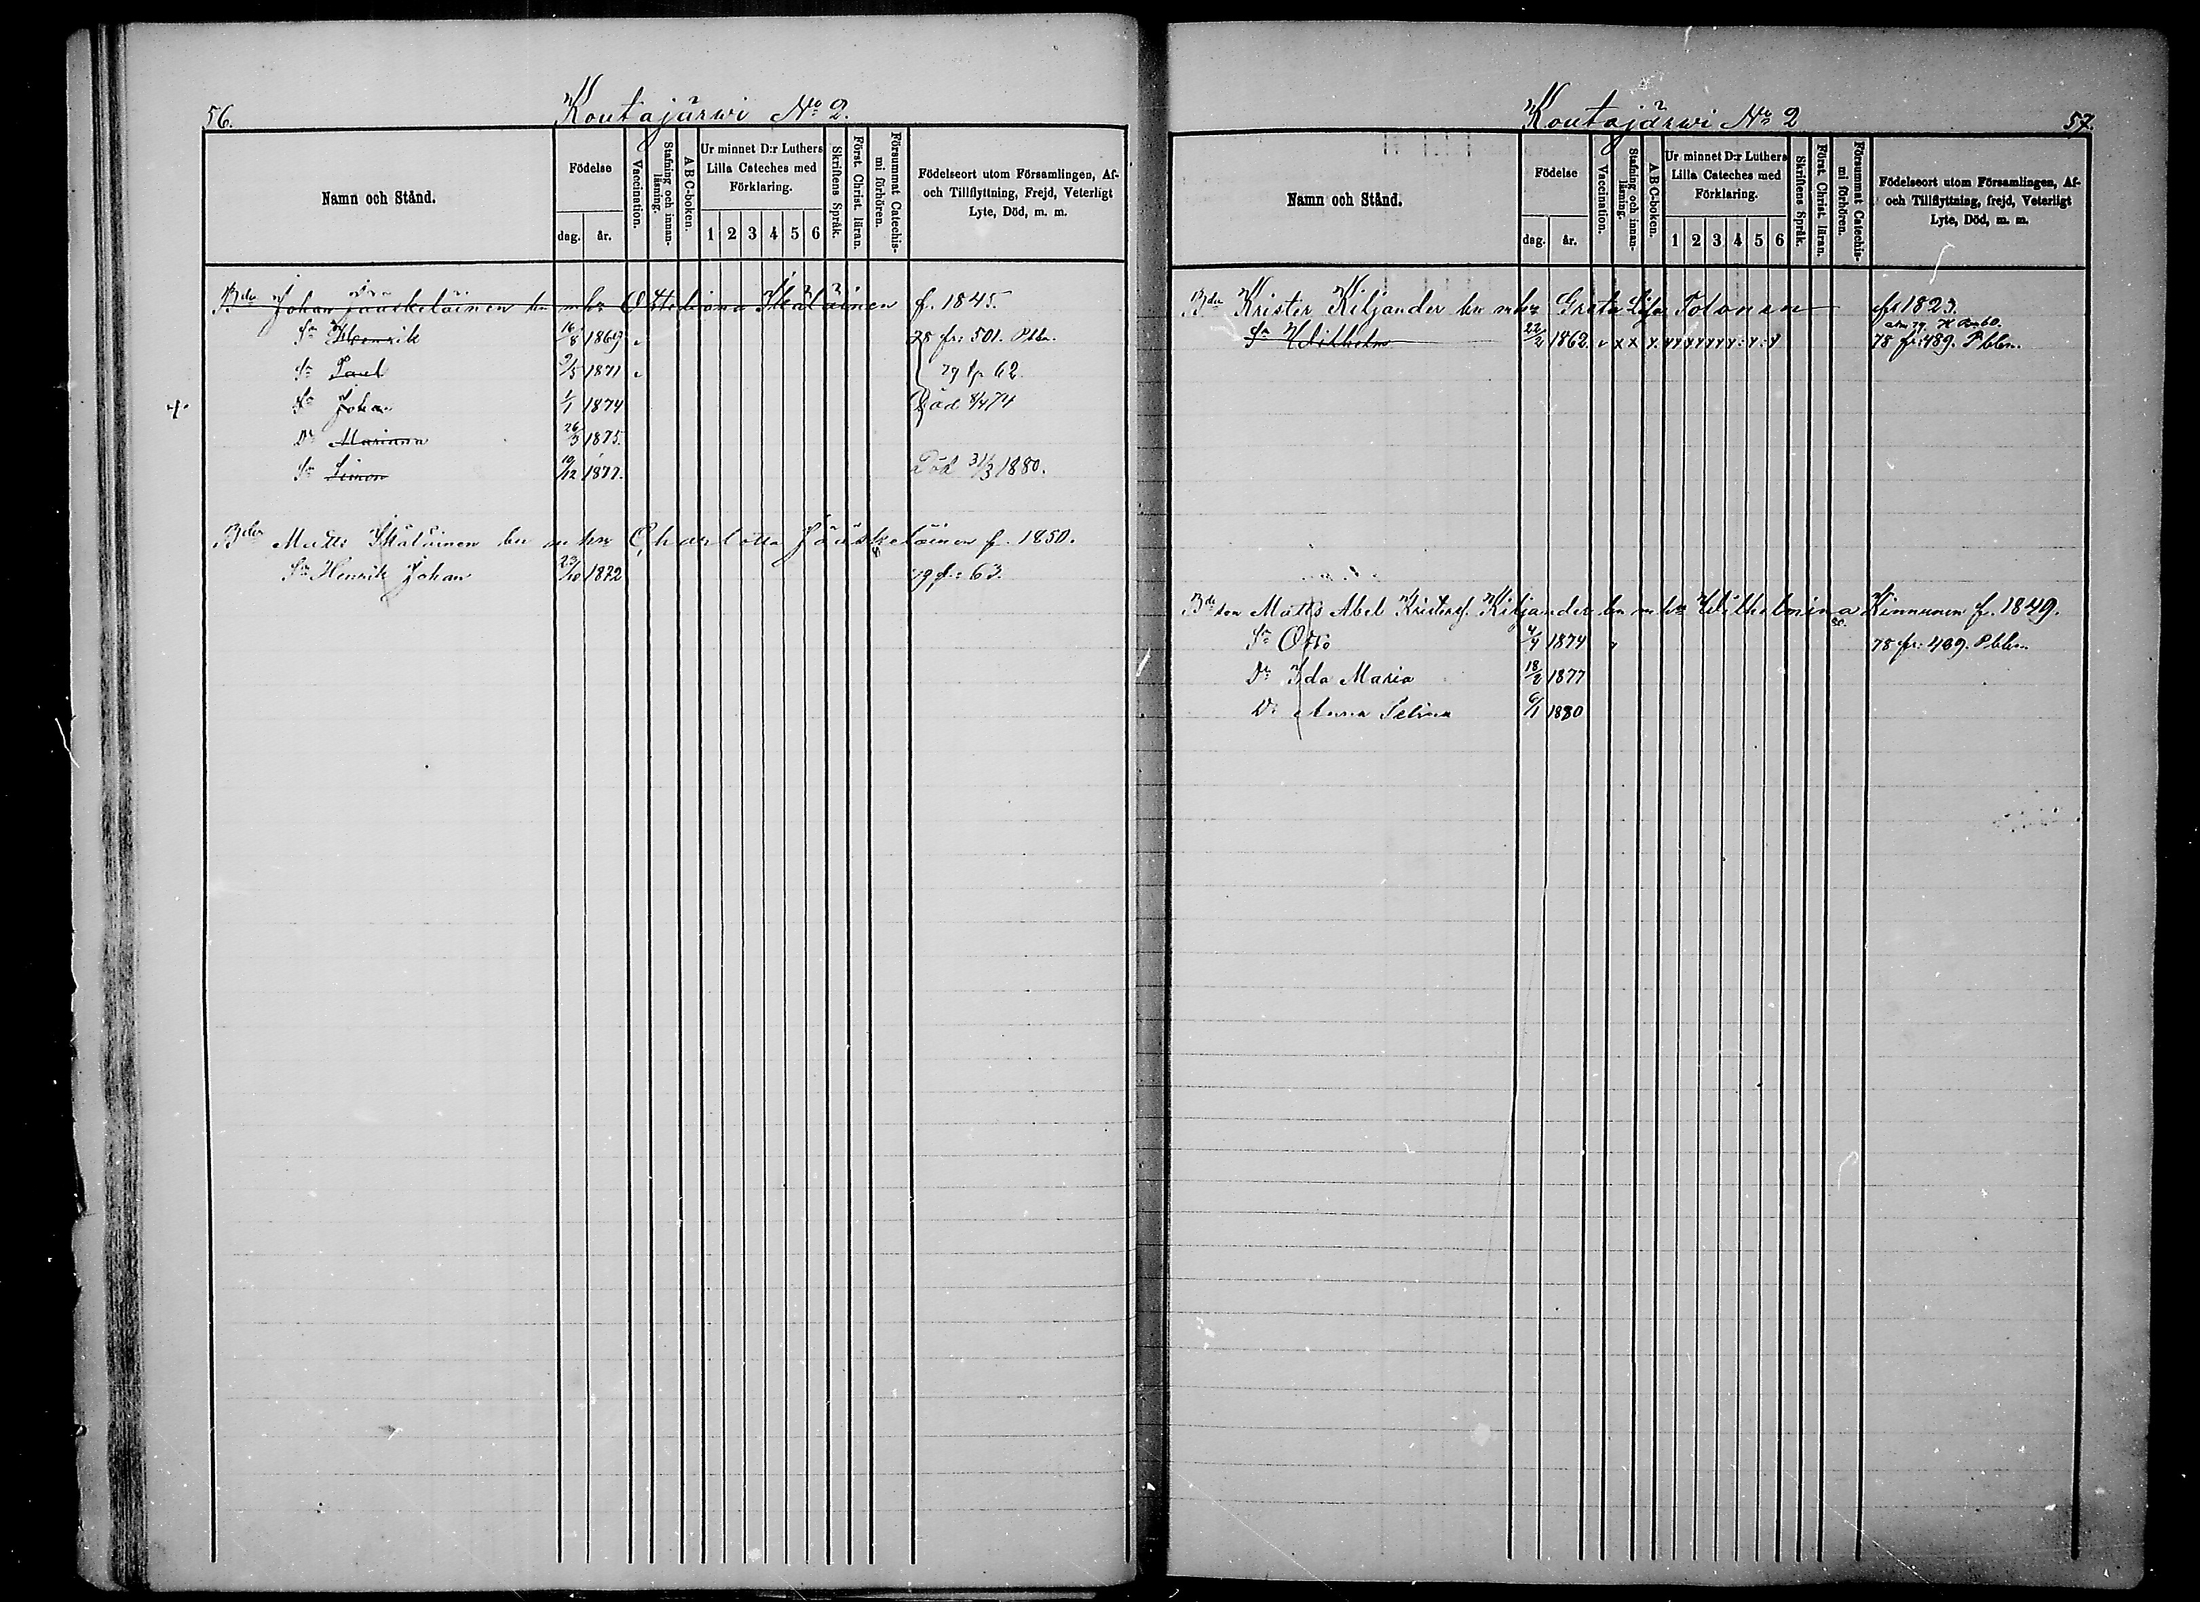 56.
Koutajärwi No 2.
Namn och Stånd.
Födelse
dag. år.
Vaccination.
Stafning och innan-läsning.
ABC-boken.
Ur minnet D:r Luthers Lilla Cateches med Förklaring.
1 2 3 4 5 6
Skriftens Språk.
Först. Christ. läran.
Försummat Catechis-mi förhören.
Födelseort utom Församlingen, Af- och Tillflyttning, Frejd, Veterligt Lyte, Död, m. m.
Bdn Johan Jääskeläinen hu m hr Ottiliana f. 1845.
Sn Henrik 16/8 1869 78 fr: 501. Pbbn.
Sn Paul 2/5 1871 79 fr 62
Sn Johan 1/1 1874 Död 8/4 74
Dr Marianna 26/3 1875.
Sn Simon 19/12 1877. Död 31/3 1880.
Bdn Matts hu m hr Charlotta Jääskeläinen f. 1850.
Sn Henrik Johan 23/10 1872 79 fr: 63.
Koutajärwi No 2
57.
Namn och Stånd.
Födelse
dag. år.
Vaccination.
Stafning och innan-läsning.
ABC-boken.
Ur minnet D:r Luthers Lilla Cateches med Förklaring.
1 2 3 4 5 6
Skriftens Språk.
Först. Christ. läran.
Försummat Catechis-mi förhören.
Födelseort utom Församlingen, Af- och Tillflyttning, frejd, Veterligt Lyte, Död, m. m.
Bdn Krister Kiljander hu m hr Greta Lisa Tolonen f. 1823.
Sn Wilhelm 22/2 1862. 78 fr: 489. Pbbn.
Bdeson Matts Abel Kristerss. Kiljander hu m hr Wilhelmina Kinnunen f. 1849.
Sn Otto 4/4 1874 78 fr: 489. Pbbn.
Dr Ida Maria 18/2 1877
Dr Anna Selina 6/1 1880